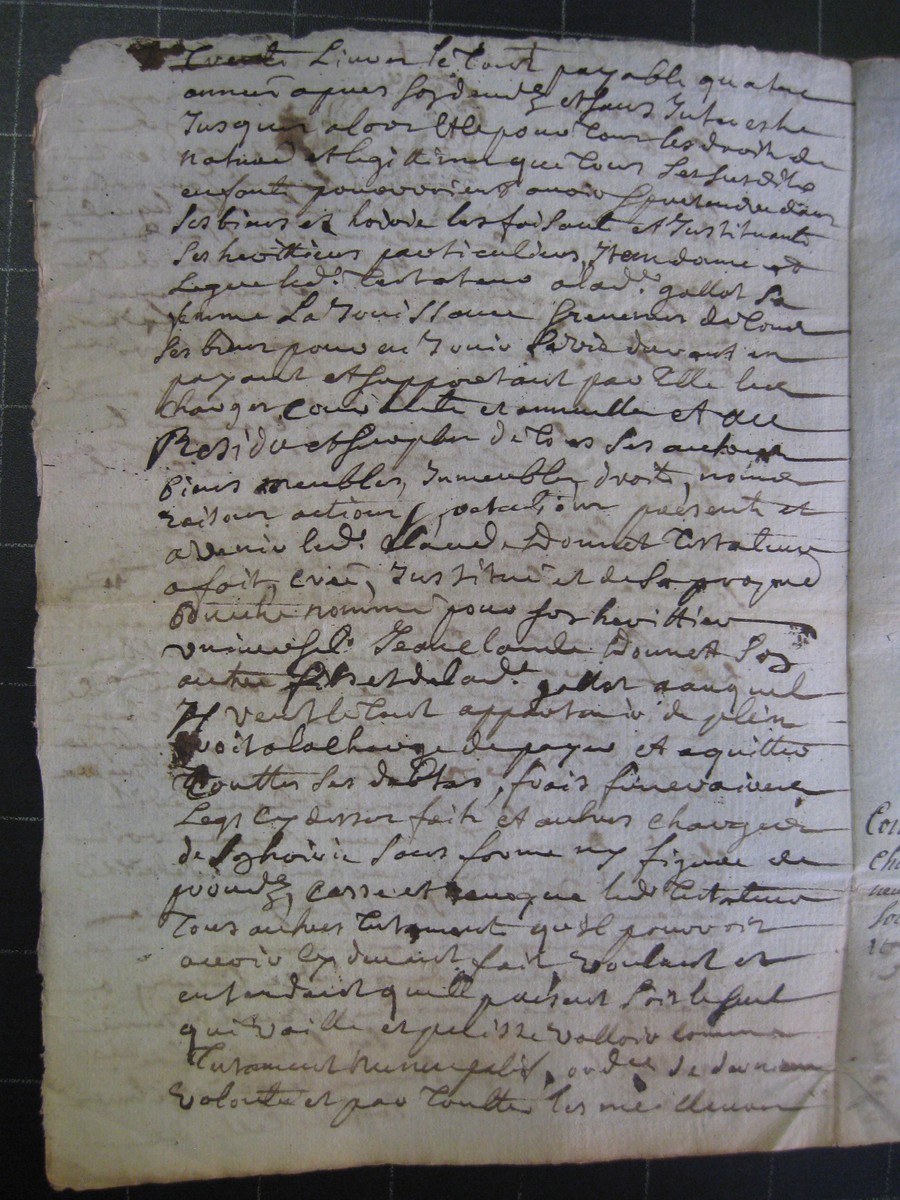 trente Livres le tout payable quatre
années apres son decedz et sans Interest
Jusques alors Et le pour tous les droits de
nature et legittime que tous ses susdits
enfants pourroient avoir & pretendre dans
ses biens et hoirie les faisant et Instituants
ses herittiers particuliers, Item donne et
Legue led.t testateur a lad.te gallot sa
femme La Jouissance & revenus de tous
ses biens pour en Jouir sa vie durant en
payant et supportant par Elle les
charges courante et annuelle et au
Residu et surplus de tous ses autres
biens meubles, Inmeubles droits, noms
raisons actions, presents et
advenir led.t Claude Donnet testateur
a fait, creé, Institué et de sa propre
Bouche nommé pour son herittier
universel Jean claude Donnet son
autre fils et de lad.te gallot auquel
Il veut le tout appartenir de plein
droit a la charge de payer et aquitter
touttes ses debtes, frais funeraires
Legs cy dessus fait et autres charges
de son hoirie sans forme ny figure de
procedz, casse et revoque led.t testateur
tous autres testament qu'il pourroit
avoir cy devant fait voulant et
entendant que le present soit le seul
qui vaille et puisse valloir comme
testament nuncupatif, ordre de derniere
volonté et par touttes les meilleures
Con